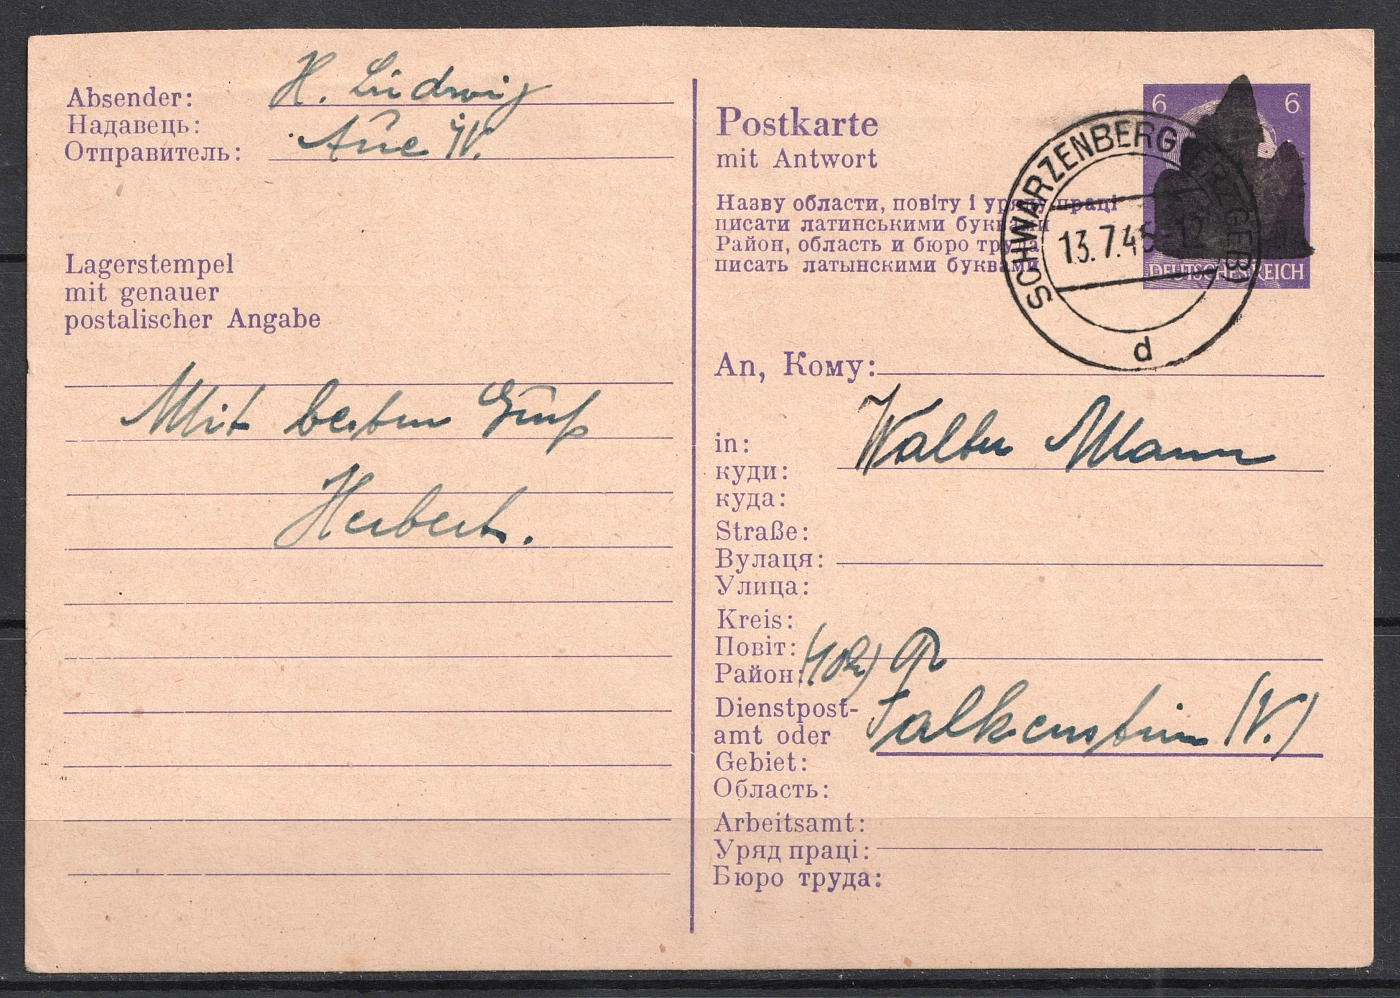 Absender:
Надавець:
Отправитель:
H. Ludwig
Aue
Lagerstempel
mit genauer
postalischer Angabe
Mit besten Gruß
Herbert.
Postkarte
mit Antwort
Назву области, повіту і уряду праці
писати латинськими буквами
Район, область и бюро труда
писать латынскими буквами
6 6
DEUTSCHES REICH
SCHWARZENBERG (ERZGEB)
13.7.45-12
d
An, Кому:
Walter Mann
in:
куди:
куда:
Straße:
Вулаця:
Улица:
Kreis:
Повіт:
Район:
Dienstpost-
amt oder
Gebiet:
Область:
Falkenstein (V.)
Arbeitsamt:
Уряд праці:
Бюро труда: